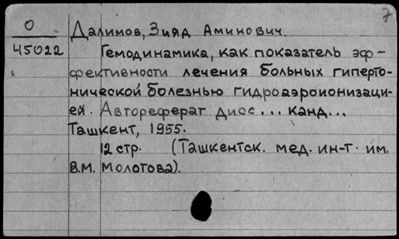 7
О Далимов, Зияд Аминович.
45022 Гемодинамика, как показатель эф-
фективности лечения больных гиперто-
нической болезнью гидроаэроионизаци-
ей. Автореферат дисс... канд...
Ташкент, 1955.
12 стр. (Ташкентск. мед. ин-т. им.
В.М. Молотова).